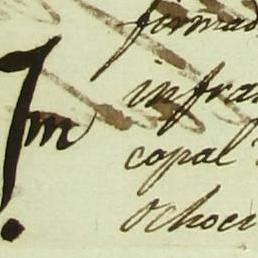 firmad
infra
copal
ochoci